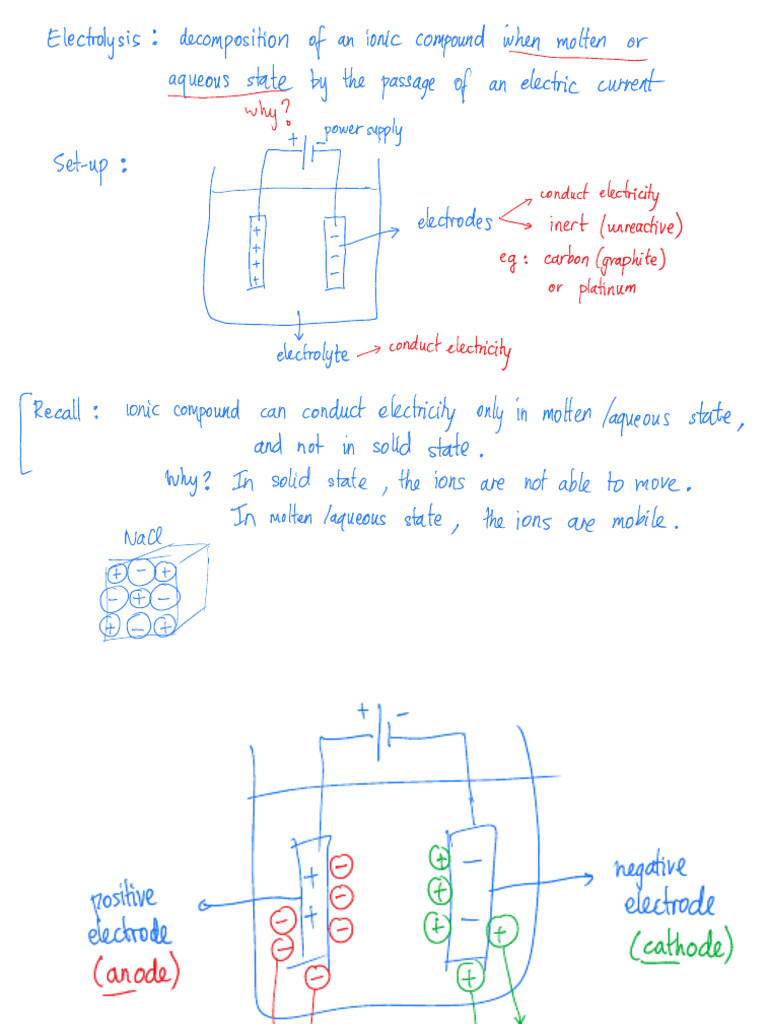 Electrolysis : decomposition of an ionic compound when molten or
aqueous state by the passage of an electric current
why?
+ - power supply
Set-up :
conduct electricity
electrodes
inert (unreactive)
eg : carbon (graphite)
or platinum
+ -
+ -
+ -
+ -
electrolyte → conduct electricity
Recall : ionic compound can conduct electricity only in molten /aqueous state,
and not in solid state.
Why? In solid state, the ions are not able to move.
In molten /aqueous state, the ions are mobile.
NaCl
+ - +
- + -
+ - +
+ -
- + -
+ - +
- + -
+ - + - +
- +
- +
positive
electrode
(anode)
negative
electrode
(cathode)